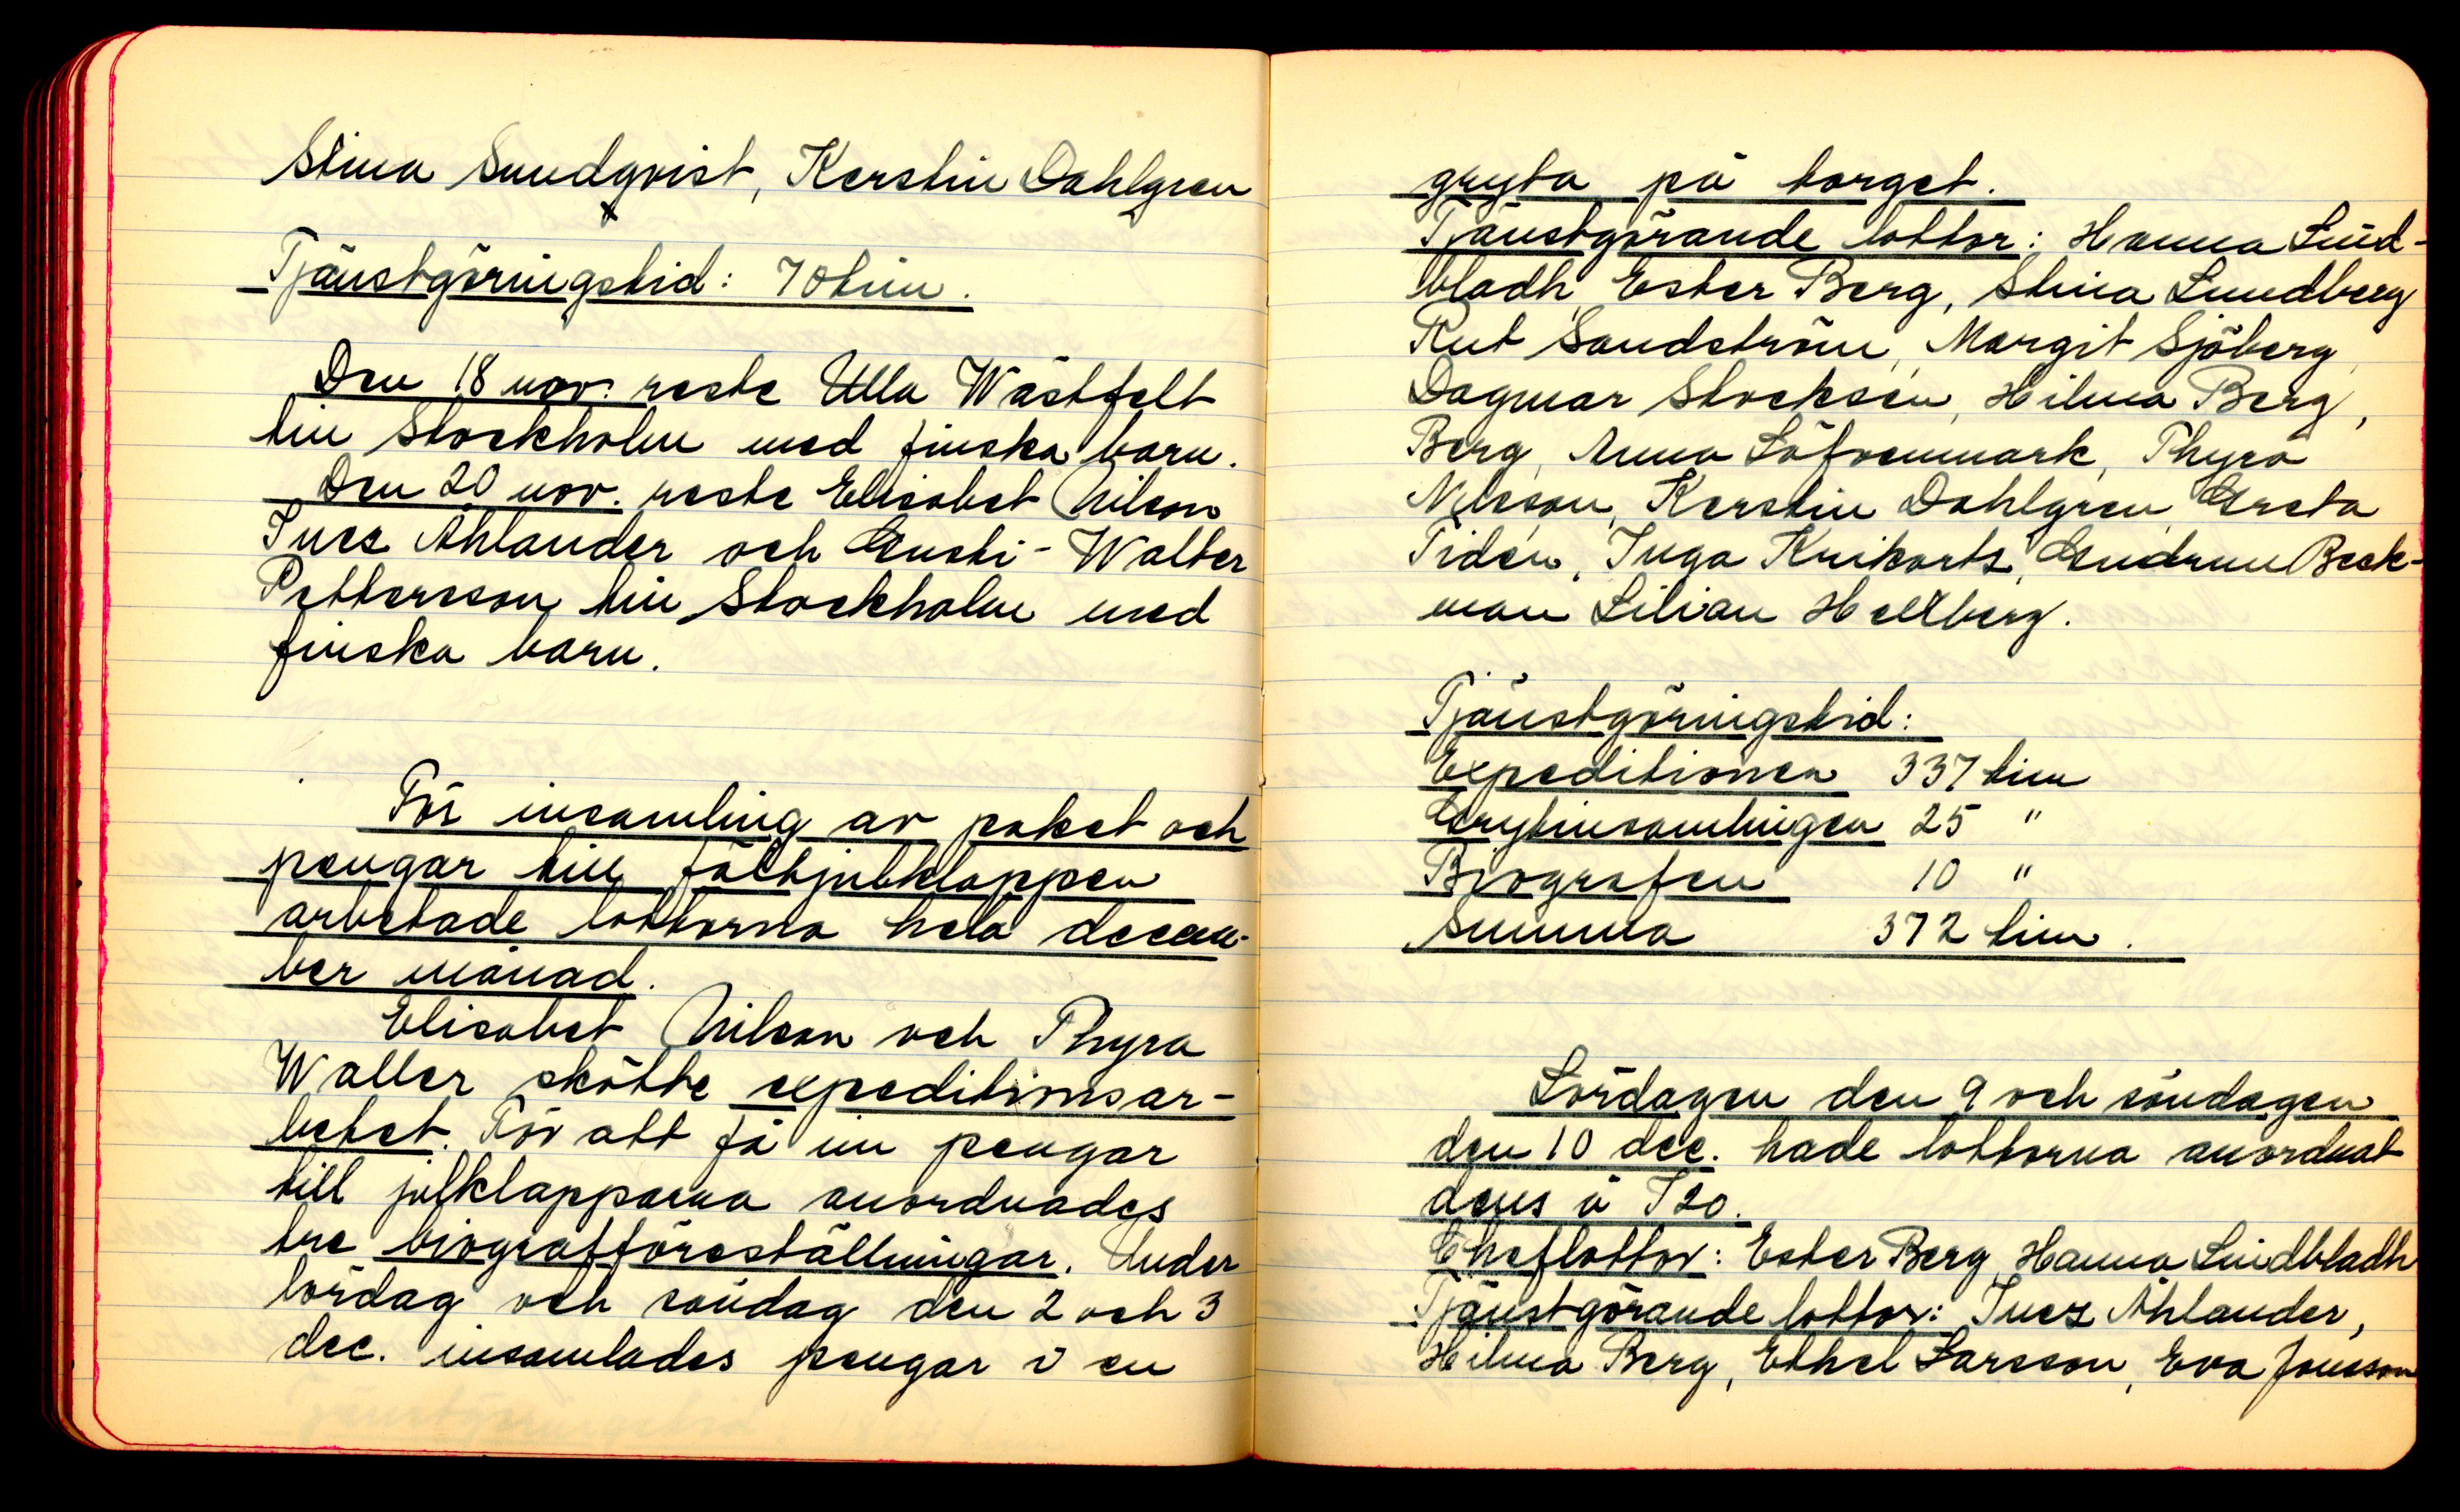 Stina Sundqvist, Kerstin Dahlgren
Tjänstgöringstid: 70 tim.
Den 18 nov. reste Ulla Wästfelt
till Stockholm med finska barn.
Den 20 nov. reste Elisabet Nilson
Inez Åhlander och Gucki-Walter
Pettersson till Stockholm med
finska barn.
För insamling av paket och
pengar till fältjulklappen
arbetade lottorna hela decem-
ber månad.
Elisabet Nilson och Thyra
Waller skötte expeditionsar-
betet. För att få in pengar
till julklapparna anordnades
tre biografföreställningar. Under
lördag och söndag den 2 och 3
dec. insamlades pengar i en
gryta på torget.
Tjänstgörande lottor: Hanna Lind-
bladh, Ester Berg, Stina Lundberg
Rut Sandström, Margit Sjöberg,
Dagmar Stocksén, Hilma Berg,
Berg, Anna Löfvenmark, Thyra
Nilsson, Kerstin Dahlgren, Greta
Tidén, Inga Krikorts, Gudrun Beck-
man Lilian Hellberg.
Tjänstgöringstid:
Expeditionen 337 tim
Grytinsamlingen 25 "
Biografen 10 "
Summa 372 tim.
Lördagen den 9 och söndagen
den 10 dec. hade lottorna anordnat
dans å I 20.
Cheflottor: Ester Berg, Hanna Lindbladh
Tjänstgörande lottor: Inez Åhlander,
Hilma Berg, Ethel Larsson, Eva Jonsson